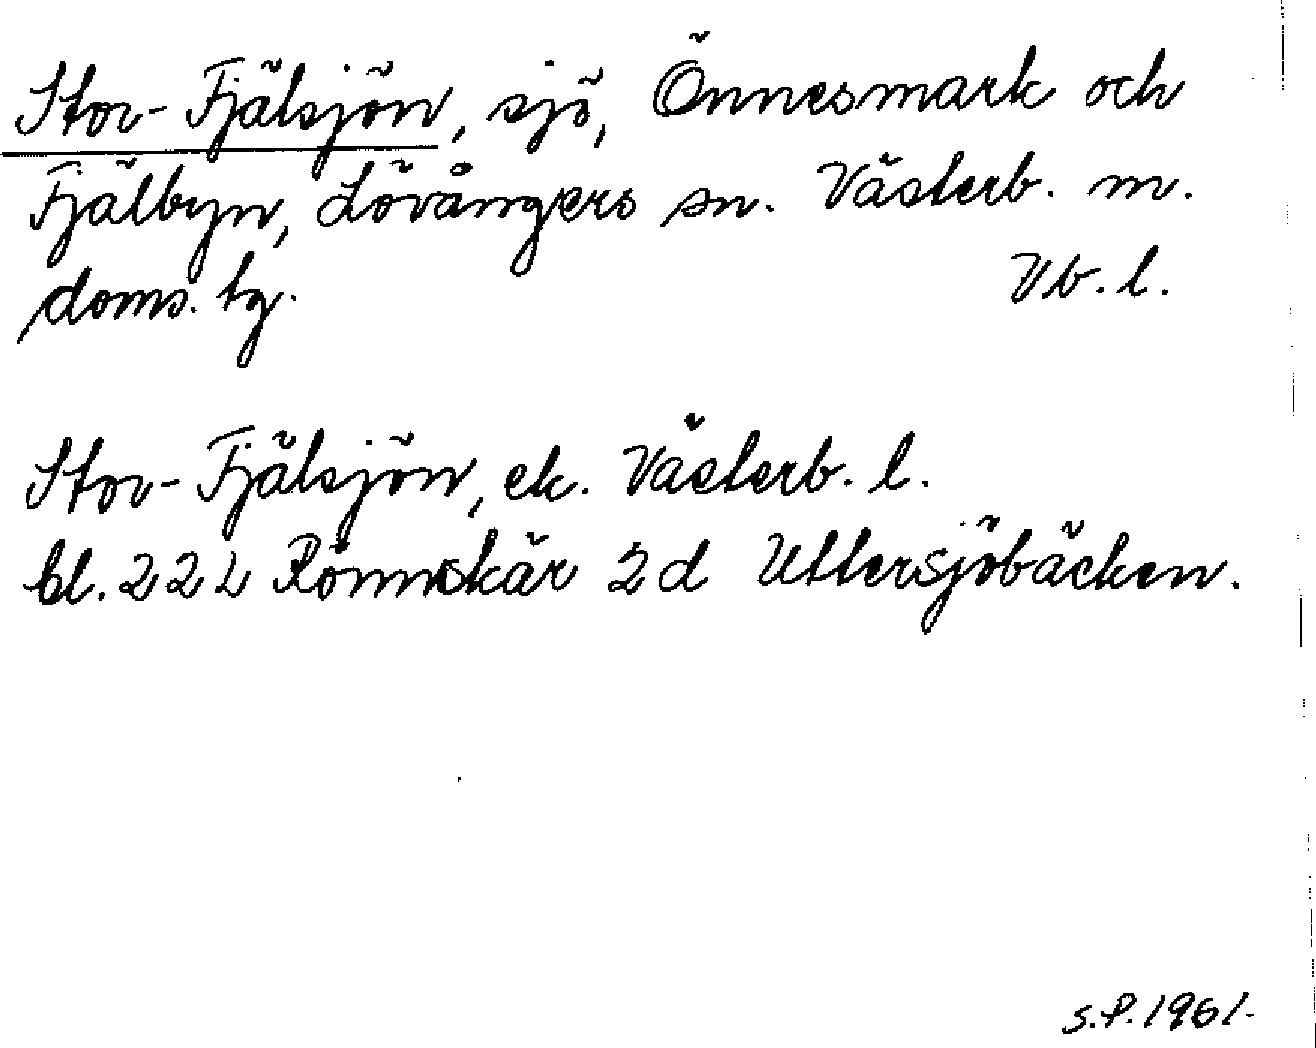 Stor-Fjälsjön, sjö, Önnesmark och
Fjälbyn, Lövångers sn. Västerb. m.
doms. tg. Vb. l.
Stor-Fjälsjön, ek. Västerb. l.
bl. 222 Rönnskär 2d Uttersjöbäcken.
S.P. 1961.